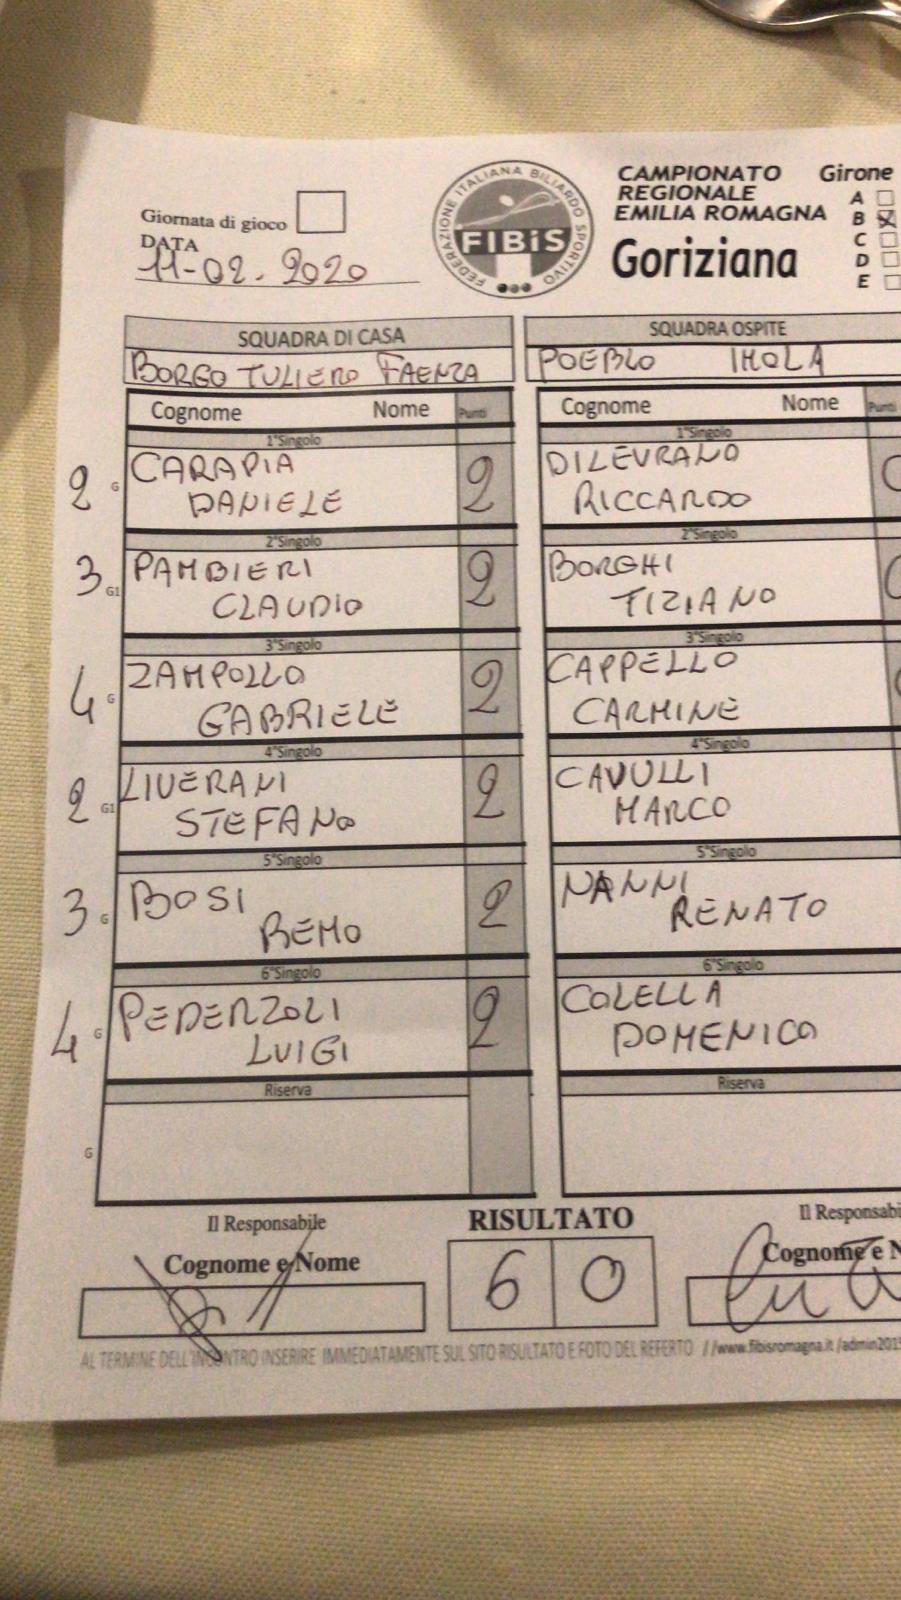 Giornata di gioco
DATA
11-02-2020
FEDERAZIONE ITALIANA BILIARDO SPORTIVO
FIBiS
CAMPIONATO
REGIONALE
EMILIA ROMAGNA
Goriziana
Girone
A
B X
C
D
E
SQUADRA DI CASA
BORGO TULIERO FAENZA
SQUADRA OSPITE
POEBLO IMOLA
Cognome Nome Punti
Cognome Nome Punti
1°Singolo
2 G CARAPIA 2
DANIELE
1°Singolo
DILEVRANO 0
RICCARDO
2°Singolo
3 G1 PAMBIERI 2
CLAUDIO
2°Singolo
BORGHI 0
TIZIANO
3°Singolo
4 G ZAMPOLLO 2
GABRIELE
3°Singolo
CAPPELLO
CARMINE
4°Singolo
2 G1 LIVERANI 2
STEFANO
4°Singolo
CAVULLI
MARCO
5°Singolo
3 G BOSI 2
REMO
5°Singolo
NANNI
RENATO
6°Singolo
4 G PEDERZOLI 2
LUIGI
6°Singolo
COLELLA
DOMENICO
Riserva
G
Riserva
Il Responsabile
Cognome e Nome
RISULTATO
6 0
Il Responsabi
Cognome e N
AL TERMINE DELL'INCONTRO INSERIRE IMMEDIATAMENTE SUL SITO RISULTATO E FOTO DEL REFERTO //www.fibisromagna.it/admin2019